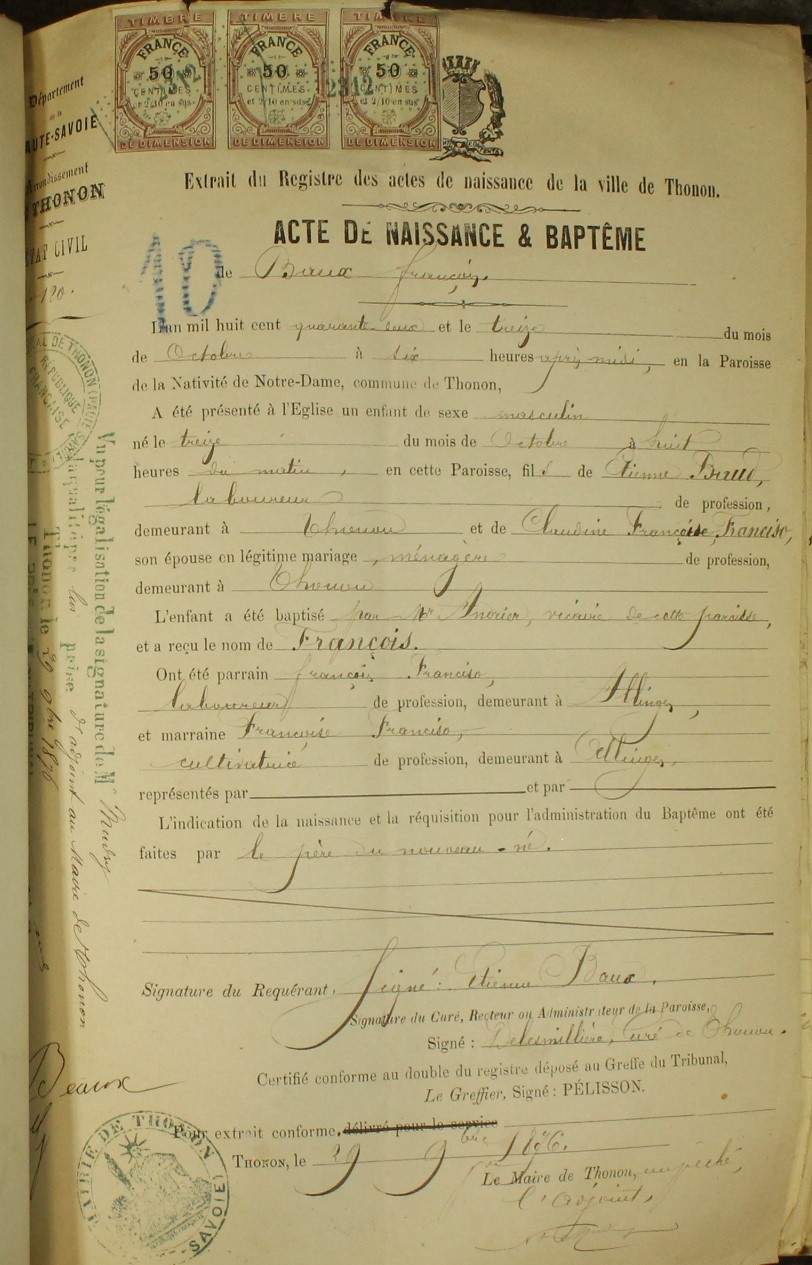 TIMBRE TIMBRE TIMBRE
FRANCE FRANCE FRANCE
50 50 50
CENTIMES CENTIMES CENTIMES
et 2/10 en sus et 2/10 en sus et 2/10 en sus
DE DIMENSION DE DIMENSION DE DIMENSION
Département
de la
HAUTE-SAVOIE
Arrondissement
THONON
ETAT CIVIL
Extrait du Registre des actes de naissance de la ville de Thonon.
ACTE DE NAISSANCE & BAPTÊME
10
de Baux françois
L'an mil huit cent quarante-deux et le treize du mois
de Octobre à six heures après midi, en la Paroisse
de la Nativité de Notre-Dame, commune de Thonon,
A été présenté à l'Eglise un enfant de sexe masculin
né le treize du mois de Octobre à huit
heures du matin, en cette Paroisse, fils de Etienne Baud,
laboureur de profession,
demeurant à Thonon et de Claudine Françoise Franciso,
son épouse en légitime mariage, ménagère de profession,
demeurant à Thonon
L'enfant a été baptisé par Mr vicaire de cette paroisse,
et a reçu le nom de François.
Ont été parrain françois Franciso,
laboureur de profession, demeurant à Allinges,
et marraine Françoise Franciso,
cultivatrice de profession, demeurant à Allinges,
représentés par et par
L'indication de la naissance et la réquisition pour l'administration du Baptême ont été
faites par le père du nouveau-né.
Signature du Requérant, Signé: Etienne Baux.
Signature du Curé, Recteur ou Administrateur de la Paroisse,
Signé: Delesmillière, Curé de Thonon.
Certifié conforme au double du registre déposé au Greffe du Tribunal,
Le Greffier, Signé: PÉLISSON.
Pour extrait conforme, délivré pour le service
THONON, le 29 9bre 1876.
Le Maire de Thonon, empêché,
l'adjoint,
Vu pour légalisation de la signature de Mr Mudry
adjoint au Maire de Thonon
Thonon le 29 9bre 1876
RÉPUBLIQUE FRANÇAISE
Beaux
MAIRIE DE THONON
SAVOIE